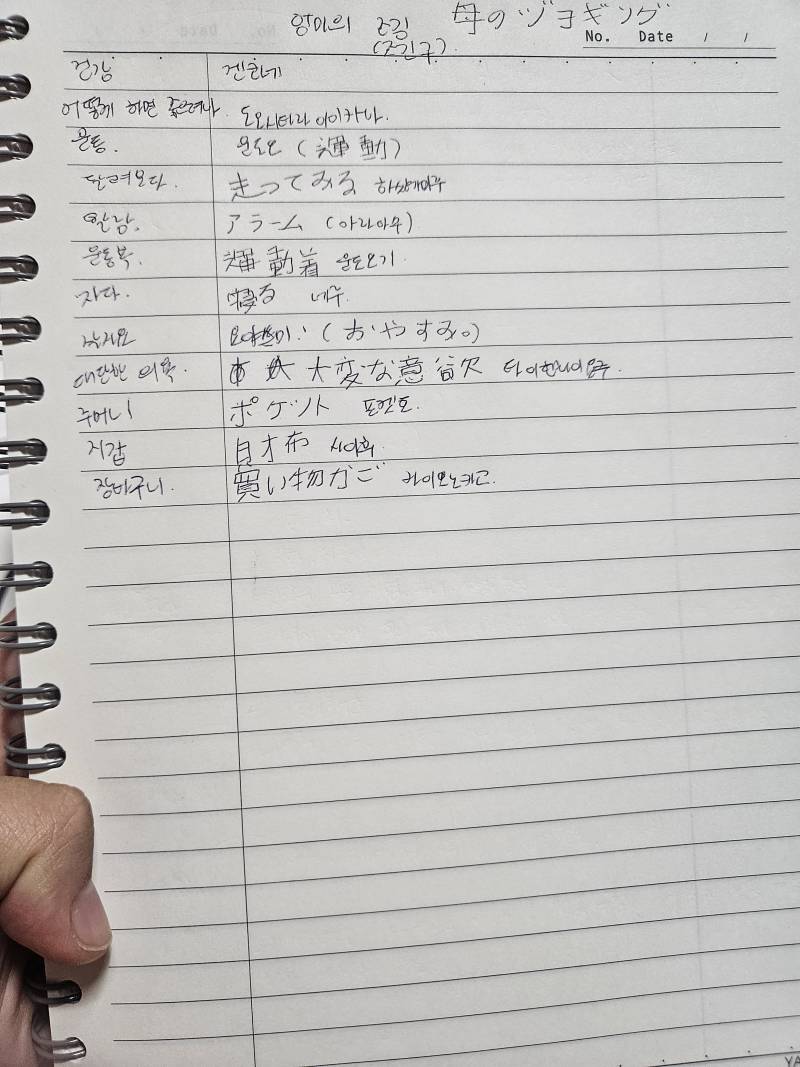 엄마의 조깅 母のヅョギング
(조긴구)
No. Date / /
건강 겐코네
어떻게 하면 좋으려나. 도오시타라 이이카나.
운동. 운도오 (運動)
달려보다. 走ってみる 하싯테미루
알람. アラーム (아라아무)
운동복. 運動着 운도오기
자다. 寝る 네루
(おやすみ。)
대단한 의욕. 大変な意欲 타이헨나이요쿠.
주머니 ポケット 포켓토
지갑 財布 사이후
장바구니. 買い物かご 카이모노카고.
YA